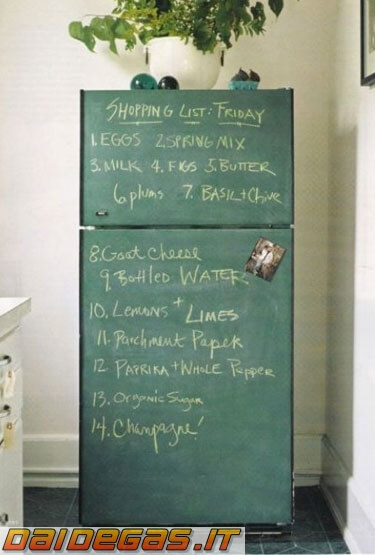 SHOPPING LIST: FRIDAY
1. EGGS 2. SPRING MIX
3. MILK 4. FIGS 5. BUTTER
6 plums 7. BASIL + Chive
8. Goat cheese
9 Bottled WATER
10. Lemons + LIMES
11. Parchment Paper
12 PAPRIKA + WHOLE Pepper
13. Organic Sugar
14. Champagne!
DAIDEGAS.IT